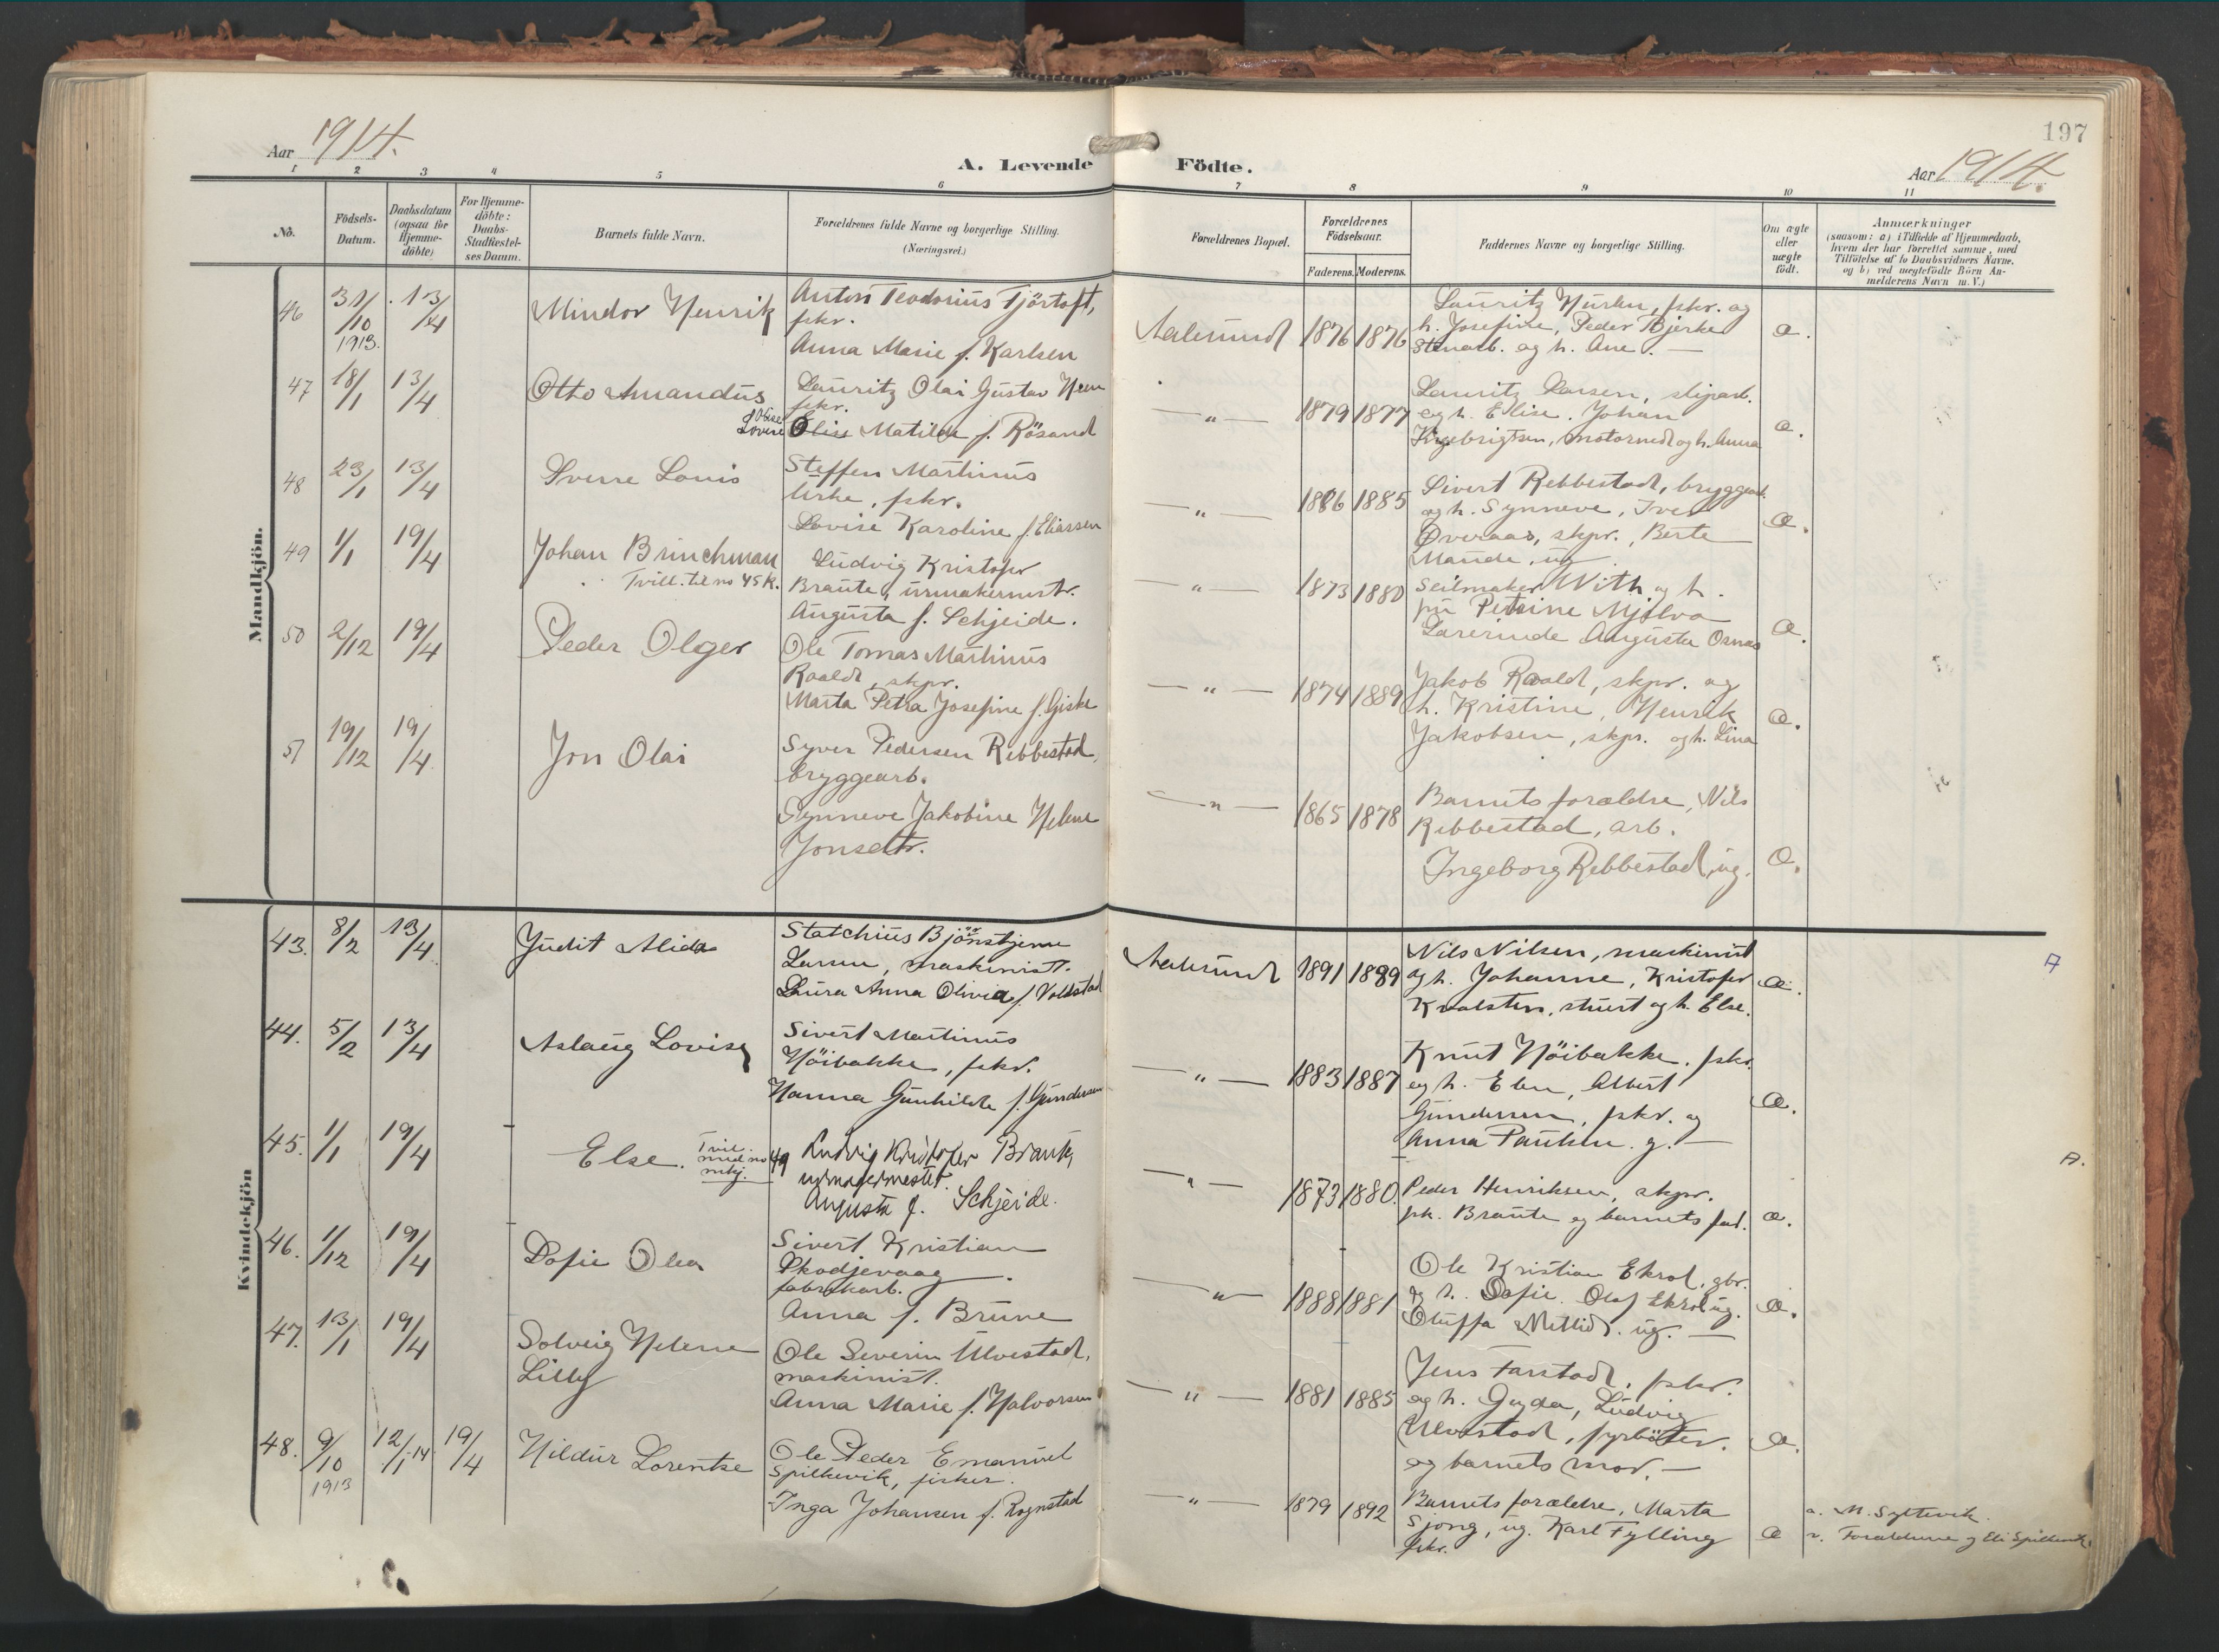 197
Aar 1914.
A. Levende Födte.
Aar 1914.
1 2 3 4 5 6 7 8 9 10 11
No.
Födsels-
Datum.
Daabsdatum
(ogsaa for
Hjemme-
döbte)
For Hjemme-
döbte:
Daabs-
Stadfæstel-
ses Datum.
Barnets fulde Navn.
Forældrenes fulde Navne og borgerlige Stilling.
(Næringsvei.)
Forældrenes Bopæl.
Forældrenes
Födselsaar.
Faderens. Moderens.
Faddernes Navne og borgerlige Stilling.
Om ægte
eller
uægte
födt.
Anmærkninger
(saasom: a) i Tilfælde af Hjemmedaab,
hvem der har forrettet samme, med
Tilföielse af to Daabsvidners Navne,
og b) ved uægtefödte Börn An-
melderens Navn m. V.)
Mandkjön.
46 31/10 1913. 13/4
Mindor Henrik
Anton Teodorius Fjörtoft,
fskr.
Anna Marie f. Karlsen
Aalesund 1876 1876
Lauritz fskr. og
h. Josefine, Peder Bjerke
Stenarb. og h. Ane. —
Æ.
47 18/1 13/4
Otto Amandus
Lauritz Olai Gustav
fskr.
Olise Lovise
Matilde f. Rösand
— " — 1879 1877
Lauritz Larsen, sliparb.
og h. Elise. Johan
Ingebrigtsen, motormed og h. Anna
Æ.
48 23/1 13/4
Sverre Louis
Steffen Martinus
Urke, fskr.
Lovise Karoline f. Eliassen
— " — 1886 1885
Sivert Rebbestad, bryggearb.
og h. Synneve, Iver
Overaas, skpr., Berte
Mande, ug.
Æ.
49 1/1 19/4
Johan Brinchman
Tvill. til no 45 K.
Ludvig Kristofer
Braute, urmakermstr.
Augusta f. Schjeide.
— " — 1873 1880
Seilmaker With og h.
Petrine Mjölva
Lærerinde Augusta Osnes
Æ.
50 2/12 19/4
Peder Olger
Ole Tomas Martinus
Roald, skpr.
Marta Petra Josefine f. Giske
— " — 1874 1889
Jakob Roald, skpr. og
h. Kristine, Henrik
Jakobsen, skpr. og h. Lina
Æ.
51 19/12 19/4
Jon Olai
Syver Pedersen Rebbestad,
bryggearb.
Synneve Jakobine Helene
Jonsdtr.
— " — 1865 1878
Barnets forældre, Nils
Rebbestad, arb.
Ingeborg Rebbestad, ug.
Æ.
Kvindekjön
43. 8/2 13/4
Judit Alida
Statchius Björnstjerne
Larsen, maskinist.
Laura Anna Olivia f. Voldstad
Aalesund 1891 1889
Nils Nilsen, maskinist
og h. Johanne, Kristofer
Kvalsten, stuert og h. Else.
Æ.
A
44. 5/2 13/4
Aslaug Lovise
Sivert Martinus
Höibakke, fskr.
Hanna Gunhilde f. Gundersen
— " — 1883 1887
Knut Höibakke, fskr.
og h. Elen, Albert
Gundersen, fskr. og
Anna Paulsen g. —
Æ.
45. 1/1 19/4
Else.
Tvil. med no 49 mkj.
Ludvig Kristofer Braute,
urmagermester.
Augusta f. Schjeide.
— " — 1873 1880.
Peder Henriksen, skpr.
frk. Braute og barnets far.
Æ.
A.
46. 1/12 19/4
Dafie Olea
Sivert Kristian
Skodjevaag
fabrikarb.
Anna f. Brune
— " — 1888 1881
Ole Kristian Ekrol, gbr.
og h. Dafie. Olaf Ekrol ug.
Oluffa ug. —
Æ.
47. 13/1 19/4
Solveig Helene
Lilly
Ole Severin Ulvestad,
maskinist.
Anna Marie f. Halvorsen
— " — 1881 1885
Jens Farstad, fskr.
og h. Gyda, Ludvig
Ulvestad, fyrböter.
og barnets mor. —
Æ.
48. 9/10 1913 12/1 14 19/4
Hildur Lorentse
Ole Peder Emanuel
Spilkevik, fisker.
Inga Johansen f. Rognstad
— " — 1879 1892
Barnets forældre, Marta
Sjong, ug. Karl Fylling
fskr.
Æ
a. M. Syltevik.
v. Forældrene og Eli Spilkevik.